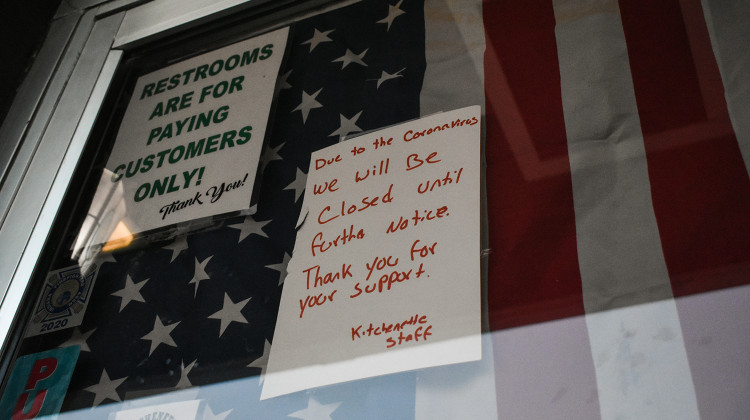 RESTROOMS
ARE FOR
PAYING
CUSTOMERS
ONLY!
Thank You!
Due to the Coronavirus
we will Be
Closed until
furthe Notice.
Thank you for
your support.
Kitchenette
staff
2020
P
U